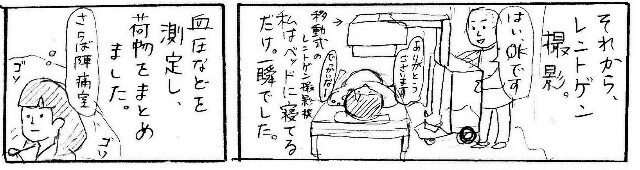 それから、
レントゲン
撮影。
はい、OKです
ありがとう
ございます
でかいなー
移動式の
レントゲン撮影機
私はベッドに寝てる
だけ。一瞬でした。
血圧などを
測定し、
荷物をまとめ
ました。
さらば陣痛室
ゴソ
ゴソ